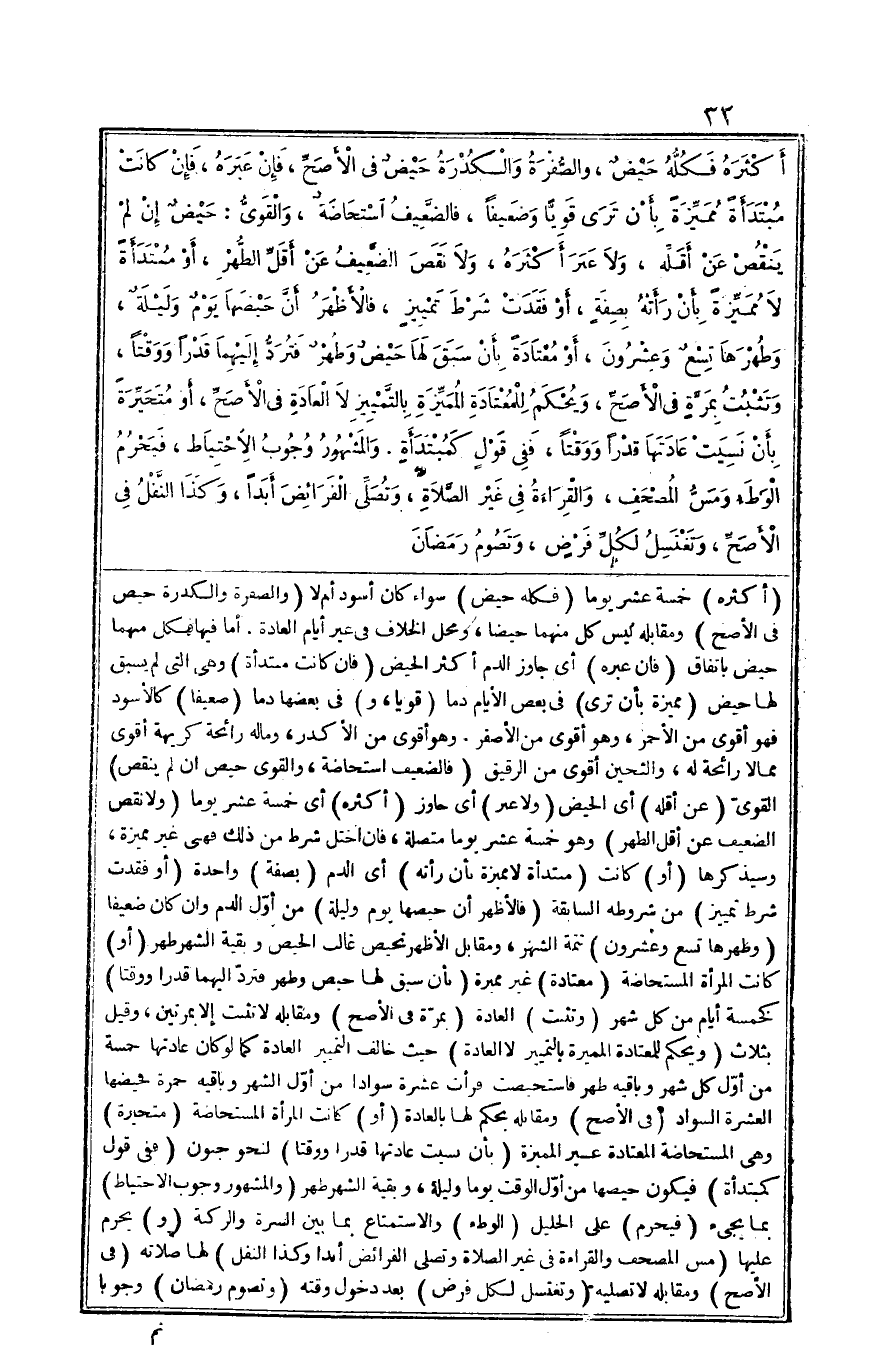 ٣٢
أَكْثَرَهُ فَكُلُّهُ حَيْضٌ ، والصُّفْرَةُ وَالْكُدْرَةُ حَيْضٌ فى الْأَصَحِّ ، فَإِنْ عَبَرَهُ ، فَإِنْ كانَتْ
مُبْتَدَأَةً مُمَيِّزَةً بِأَنْ تَرَى قَوِيًّا وَضَعِيفاً ، فالضَّعِيفُ اسْتِحَاضَةٌ ، وَالْقَوِىُّ : حَيْضٌ إِنْ لَمْ
يَنْقُصْ عَنْ أَقَلِّهِ ، وَلاَ عَبَرَ أَكْثَرَهُ ، وَلاَ نَقَصَ الضَّعِيفُ عَنْ أَقَلِّ الطُّهْرِ ، أَوْ مُبْتَدَأَةً
لاَ مُمَيِّزَةً بِأَنْ رَأَتْهُ بِصِفَةٍ ، أَوْ فَقَدَتْ شَرْطَ تَمْيِيزٍ ، فالْأَظْهَرُ أَنَّ حَيْضَهَا يَوْمٌ وَلَيْلَةٌ ،
وَطُهْرَهَا تِسْعٌ وَعِشْرُونَ ، أَوْ مُعْتَادَةً بِأَنْ سَبَقَ لَهَا حَيْضٌ وَطُهْرٌ فَتُرَدُّ إِلَيْهِمَا قَدْراً وَوَقْتاً ،
وَتَثْبُتُ بِمَرَّةٍ فى الْأَصَحِّ ، وَيُحْكَمُ لِلْمُعْتَادَةِ الْمُمَيِّزَةِ بِالتَّمْيِيزِ لاَ الْعَادَةِ فى الْأَصَحِّ ، أَو مُتَحَيِّرَةً
بِأَنْ نَسِيَتْ عَادَتَهَا قَدْراً وَوَقْتاً ، فَفِى قَوْلٍ كَمُبْتَدَأَةٍ . وَالْمَشْهُورُ وُجُوبُ الِاحْتِيَاطِ ، فَيَحْرُمُ
الْوَطْءُ وَمَسُّ الْمُصْحَفِ ، وَالْقِرَاءَةُ فِى غَيْرِ الصَّلاَةِ ، وَتُصَلِّى الْفَرَائِضَ أَبَداً ، وَكَذَا النَّفْلُ فِى
الْأَصَحِّ ، وَتَغْتَسِلُ لِكُلِّ فَرْضٍ ، وَتَصُومُ رَمَضَانَ
( أكثره ) خمسة عشر يوما ( فكله حيض ) سواء كان أسود أم لا ( والصفرة والكدرة حيض
فى الأصح ) ومقابله ليس كل منهما حيضا ، ومحل الخلاف فى غير أيام العادة . أما فيها فكل منهما
حيض باتفاق ( فان عبره ) أى جاوز الدم أكثر الحيض ( فان كانت مبتدأة ) وهى التى لم يسبق
لها حيض ( مميزة بأن ترى ) فى بعض الأيام دما ( قويا ، و ) فى بعضها دما ( ضعيفا ) كالأسود
فهو أقوى من الأحمر ، وهو أقوى من الأصفر . وهو أقوى من الأكدر ، وماله رائحة كريهة أقوى
مما لا رائحة له ، والثخين أقوى من الرقيق ( فالضعيف استحاضة ، والقوى حيض ان لم ينقص )
القوى ( عن أقله ) أى الحيض ( ولا عبر ) أى جاوز ( أكثره ) أى خمسة عشر يوما ( ولا نقص
الضعيف عن أقل الطهر ) وهو خمسة عشر يوما متصلة ، فان اختل شرط من ذلك فهى غير مميزة ،
وسيذكرها ( أو ) كانت ( مبتدأة لا مميزة بأن رأته ) أى الدم ( بصفة ) واحدة ( أو فقدت
شرط تمييز ) من شروطه السابقة ( فالأظهر أن حيضها يوم وليلة ) من أوّل الدم وان كان ضعيفا
( وطهرها تسع وعشرون ) تتمة الشهر ، ومقابل الأظهر تحيض غالب الحيض و بقية الشهر طهر ( أو )
كانت المرأة المستحاضة ( معتادة ) غير مميزة ( بأن سبق لها حيض وطهر فتردّ اليهما قدرا ووقتا )
كخمسة أيام من كل شهر ( وتثبت ) العادة ( بمرّة فى الأصح ) ومقابله لا تثبت إلا بمرتين ، وقيل
بثلاث ( ويحكم للمعتادة المميزة بالتمييز لا العادة ) حيث خالف التمييز العادة كما لو كان عادتها خمسة
من أوّل كل شهر و باقيه طهر فاستحيضت فرأت عشرة سوادا من أوّل الشهر و باقيه حمرة فحيضها
العشرة السواد ( فى الأصح ) ومقابله يحكم لها بالعادة ( أو ) كانت المرأة المستحاضة ( متحيرة )
وهى المستحاضة المعتادة غير المميزة ( بأن نسيت عادتها قدرا ووقتا ) لنحو جنون ( ففى قول
كمبتدأة ) فيكون حيضها من أوّل الوقت يوما وليلة ، و بقية الشهر طهر ( والمشهور وجوب الاحتياط )
بما يجىء ( فيحرم ) على الحليل ( الوطء ) والاستمتاع بما بين السرة والركبة ( و ) يحرم
عليها ( مس المصحف والقراءة فى غير الصلاة وتصلى الفرائض أبدا وكذا النفل ) لها صلاته ( فى
الأصح ) ومقابله لا تصليه ( وتغتسل لكل فرض ) بعد دخول وقته ( وتصوم رمضان ) وجوبا
ثم